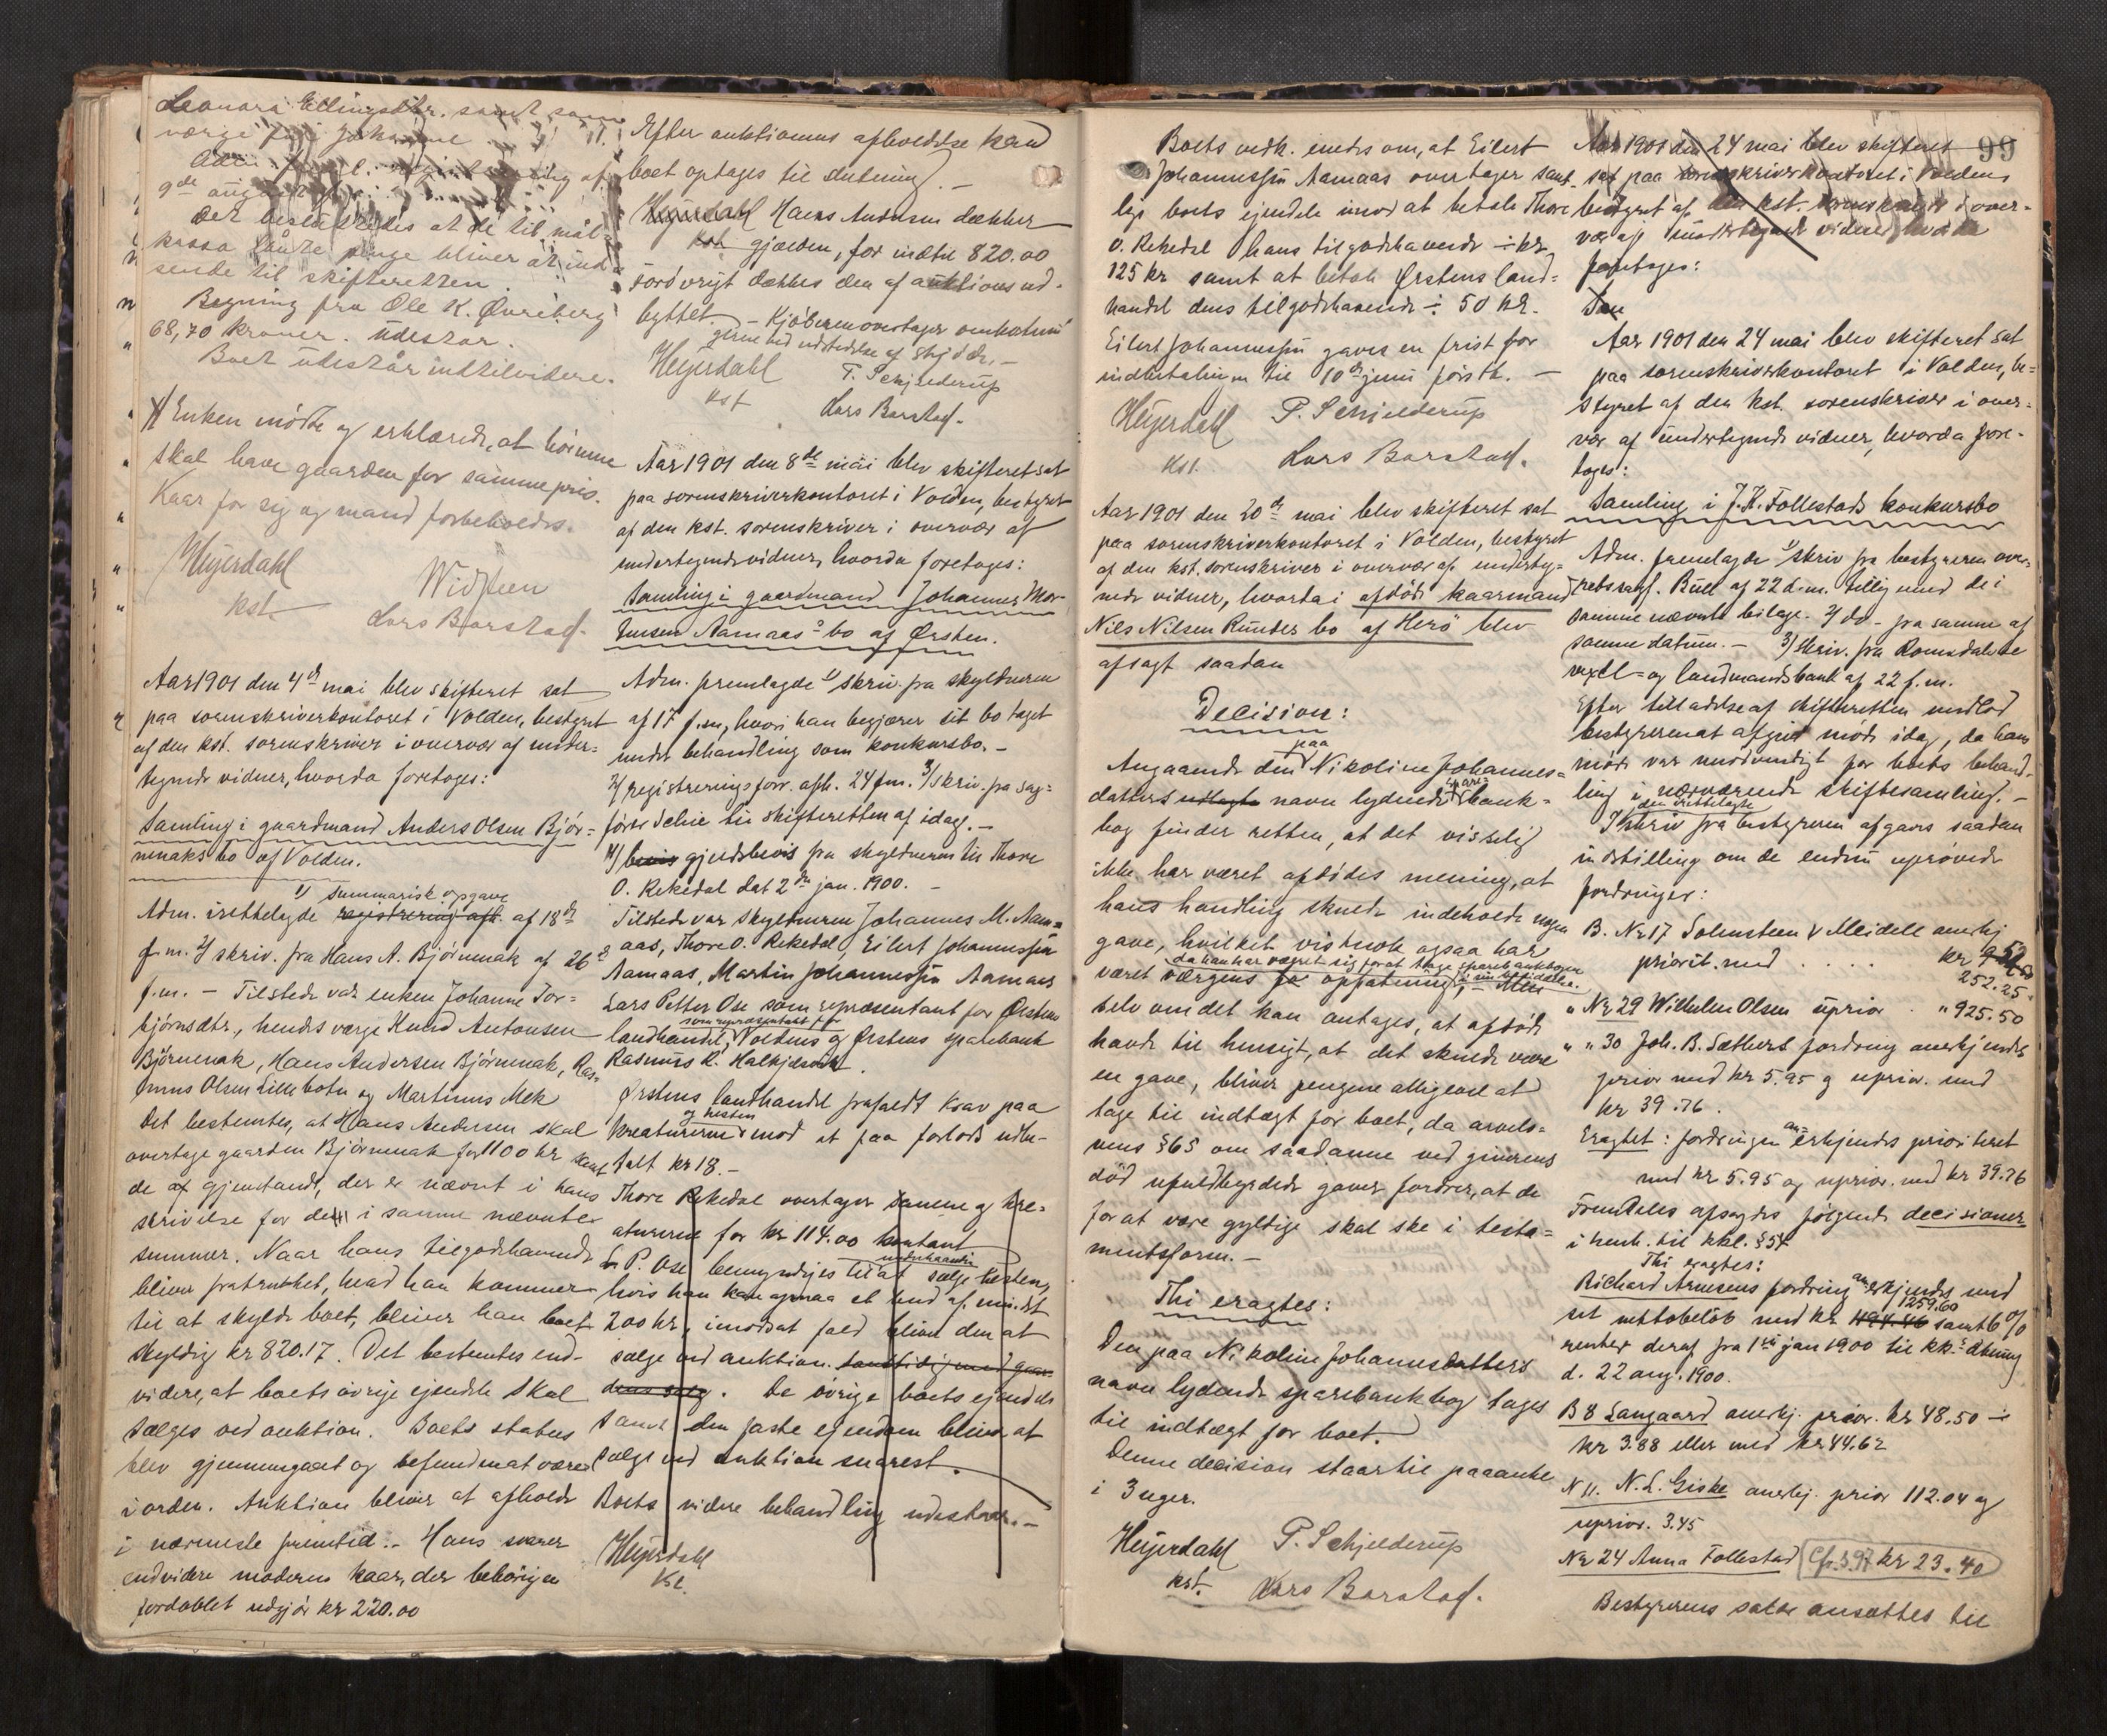 Leonora Ellingsdtr. samt som
værge for
9de aug
Det besluttedes at de til mål
kassa penge bliver at ind-
sende til skifteretten.
Regning fra Ole K. Øvreberg
68,70 kroner. Udestår.
Boet udestår indtilvidere.
Enken mødte og erklærede, at
skal have gaarden for samme pris.
Kaar for sig og mand forbeholdes.
Heyerdahl
kst.
Widsteen
Lars Barstad.
Aar 1901 den 4de mai blev skifteret sat
paa sorenskriverkontoret i Volden, bestyret
af den kst. sorenskriver i overvær af under-
tegnede vidner, hvorda foretoges:
Samling i gaardmand Anders Olsen Bjør-
nenaks bo af Volden.
1) summarisk opgave
Adm. irettelagde registrering afh. af 18de
f.m. 2) skriv. fra Hans A. Bjørnenak af 26de
f.m. – Tilstede var enken Johanne Tor-
bjørnsdtr., hendes værge Knud Antonsen
Bjørnenak, Hans Andersen Bjørnenak, Ras-
mus Olsen Lillebotn og Martinus Mek
Det bestemtes, at Hans Andersen skal
overtage gaarden Bjørnenak for 1100 kr samt
de af gjenstande, der er nævnt i hans
skrivelse for de i samme nævnte
summer. Naar hans tilgodehavende
bliver fratrukket, hvad han kommer
til at skylde boet, bliver han boet
skyldig kr 820.17. Det bestemtes end-
videre, at boets øvrige eiendele skal
sælges ved auktion. Boets status
blev gjennemgaaet og befundet at være
i orden. Auktion bliver at afholde
i nærmeste fremtid. – Hans svarer
endvidere moderen kaar, der behørigen
fordoblet udgjør kr 220.00
Efter auktionens afholdelse kan
boet optages til slutning. –
Heyerdahl Hans Andersen dækker
kst gjælden, for indtil 820.00
forøvrigt dækkes den af auktionsud-
byttet. – Kjøberen overtager omkostnin-
gerne ved udstedelse af skjøde. –
Heyerdahl P. Schjelderup
kst Lars Barstad.
Aar 1901 den 8de mai blev skifteret sat
paa sorenskriverkontoret i Volden, bestyret
af den kst. sorenskriver i overvær af
undertegnede vidner, hvorda foretoges:
Samling i gaardmand Johannes Mor-
tensen Aamaas' bo af Ørsten.
Adm. fremlagde 1) skriv. fra skyldneren
af 17 f.m., hvori han begjærer sit bo taget
under behandling som konkursbo. –
2) registreringsforr. afh. 24 f.m. 3) skriv. fra sag-
fører Schie til skifteretten af idag. –
4) bevis gjeldsbevis fra skyldneren til Thore
O. Rekedal dat 2den jan. 1900. –
Tilstede var skyldneren Johannes M. Aam-
aas, Thore O. Rekedal, Eilert Johannessøn
Aamaas, Martin Johannessøn Aamaas
Lars Petter Ose som repræsentant for Ørsten
som repræsentant for
landhandel, Voldens og Ørstens sparebank
Rasmus R. Halkjelsvik.
Ørstens landhandel frafaldt krav paa
og hesten
kreaturerne mod at faa forlods udbe-
talt kr 18. –
Thore Rekedal overtager samme og kre-
aturerne for kr 114.00 kontant
underhaanden
L. P. Ose bemyndiges til at sælge hesten,
hvis han kan opnaa et bud af mindst
200 kr, i modsat fald bliver den at
sælge ved auktion. samtidig med gaar-
dens salg. De øvrige boets ejendele
samt den faste ejendom bliver at
sælge ved auktion snarest.
Boets videre behandling udestaar. –
Heyerdahl
kst.
99
Boets vedk. enedes om, at Eilert
Johannessøn Aamaas overtager samt-
lige boets ejendele imod at betale Thore
O. Rekedal hans tilgodehavende ÷ kr
125 kr samt at betale Ørstens land-
handel dens tilgodehavende ÷ 50 kr.
Eilert Johannessøn gaves en frist for
indbetalingen til 10de juni førstk. –
Heyerdahl P. Schjelderup
kst. Lars Barstad.
Aar 1901 den 20de mai blev skifteret sat
paa sorenskriverkontoret i Volden, bestyret
af den kst. sorenskriver i overvær af underteg-
nede vidner, hvorda i afdøde kaarmand
Nils Nilsen Rundes bo af Herø blev
afsagt saadan
Decision:
paa
Angaaende den Nikoline Johannes-
spare-
datters udlagte navn lydende bank-
bog finder retten, at det visselig
ikke har været afdødes mening, at
hans handling skulde indeholde nogen
gave, hvilket vistnok ogsaa har
da han har vægret sig for at tage sparebankbogen
i sin besiddelse.
været værgens opfatning, –
selv om det kan antages, at afdøde
havde til hensigt, at det skulde være
en gave, bliver pengene alligevel at
tage til indtægt for boet, da arvelo-
vens § 65 om saadanne ved giverens
død ufuldbyrdede gaver fordrer, at de
for at være gyldige skal ske i testa-
mentsform. –
Thi eragtes:
Den paa Nikoline Johannesdatters
navn lydende sparebankbog tages
til indtægt for boet.
Denne decision staar til paaanke
i 3 uger.
Heyerdahl P. Schjelderup
kst. Lars Barstad.
Aar 1901 den 24 mai blev skifteret
sat paa sorenskriverkontoret i Voldens
bestyret af den kst. sorenskriver i over-
vær af undertegnede vidner hvorda
foretoges:
Aar 1901 den 24 mai blev skifteret sat
paa sorenskriverkontoret i Volden, be-
styret af den kst. sorenskriver i over-
vær af undertegnede vidner, hvorda fore-
toges:
Samling i J. K. Follestads konkursbo
Adm. fremlagde 1) skriv fra bestyreren over-
retssagf. Bull af 22 d.m. tillig med de i
samme nævnte bilage. 2) do – fra samme af
samme datum. – 3) Skriv. fra Romsdalske
vexel- og landmandsbank af 22 f.m.
Efter tilladelse af skifteretten undlod
bestyreren at afgive møde idag, da hans
møde var unødvendigt for boets behand-
ling i nærværende skiftesamling. –
den irettelagte
I skriv fra bestyreren afgaves saadan
indstilling om de endnu uprøvede
fordringer:
B. Nr 17 Solmsteen & Meidell anerkj
priorit. med ..... kr
252.25
" Nr 29 Wilhelm Olsen uprior. " 925.50
" " 30 Joh. B. Sætherts fordring anerkjendes
prior med kr 5.95 og uprior. med
kr 39.76.
Eragtet: fordringen anerkjendes prioriteret
med kr 5.95 og uprior. med kr 39.76
Fremdeles afsagdes følgende decisioner
i henh. til kkl. § 54
Thi eragtes:
Richard Arnesens fordring anerkjendes med
1259.60
sit nettobeløb med kr 494.46 samt 6%
renter deraf fra 1ste jan 1900 til kk.s åbning
d. 22 aug. 1900.
B 8 Langaard anerkj. prior. kr 48.50 ÷
kr 3.88 eller med kr 44.62
N 11. N. L. Giske anerkj. prior 112.04 og
uprior. 3.45
Nr 24 Anna Follestad Cfr. S 97 kr 23.40
Bestyrerens salær ansættes til